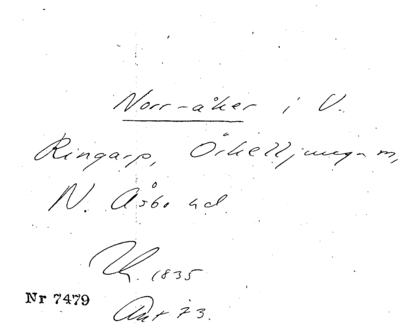 Norr-åker i V.
Ringarp, Örkelljunga m,
N. Åsbo hd.
1835
Nr 7479
Akt 73.